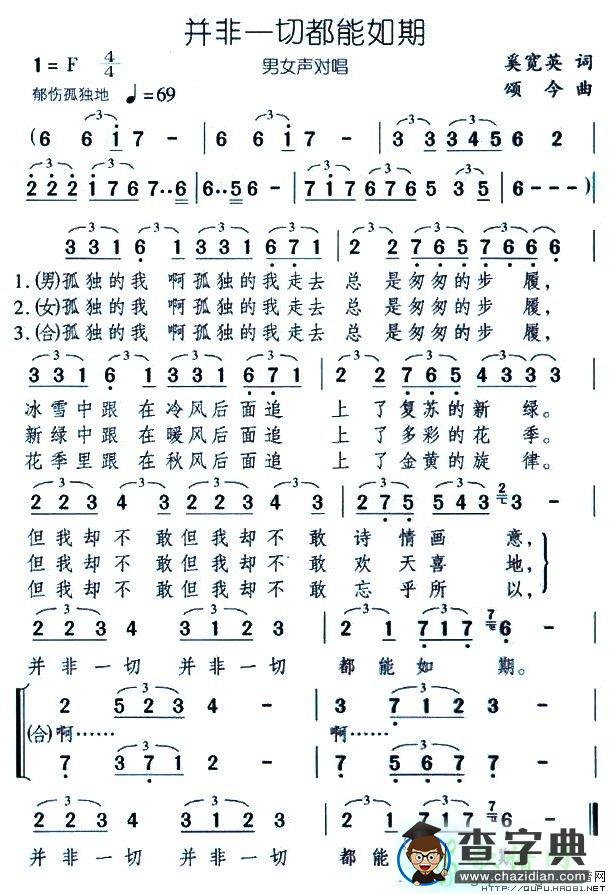 并非一切都能如期
1=F 4/4
男女声对唱
奚宽英 词
郁伤孤独地 ♩=69
颂今 曲
(6 6 i 7 - | 6 6 i 7 - | 3 3 3345 6 2 |
222 176 7··6 | 6··5 6 - | 717 6765 335 | 6--- )
331 6 1 331 671 | 2 2 765 7666 |
1.(男)孤独的我 啊孤独的我走去 总 是匆匆的步 履,
2.(女)孤独的我 啊孤独的我走去 总 是匆匆的步 履,
3.(合)孤独的我 啊孤独的我走去 总 是匆匆的步 履,
331 6 1 331 671 | 2 2 765 4333 |
冰雪中跟 在冷风后面追 上了复苏的新绿。
新绿中跟 在暖风后面追 上了多彩的花季。
花季里跟 在秋风后面追 上了金黄的旋律。
223 4 3 223 4 3 | 2 275 543 2 |
但我却不敢但我却不敢 诗情画 意,
但我却不敢但我却不敢 欢天喜 地,
但我却不敢但我却不敢 忘乎所 以,
223 4 223 4 | 2 1 717 7 6 - |
并非一切 并非一切 都能如 期。
2 523 4 - | 3 712 3 - |
(合)啊…… 啊……
7 371 2 - | 7 567 7 - |
223 4 223 4
并非一切 并非一切 都能
查字典
www.chazidian.com
HTTP://QUPU.HAOBI.NET